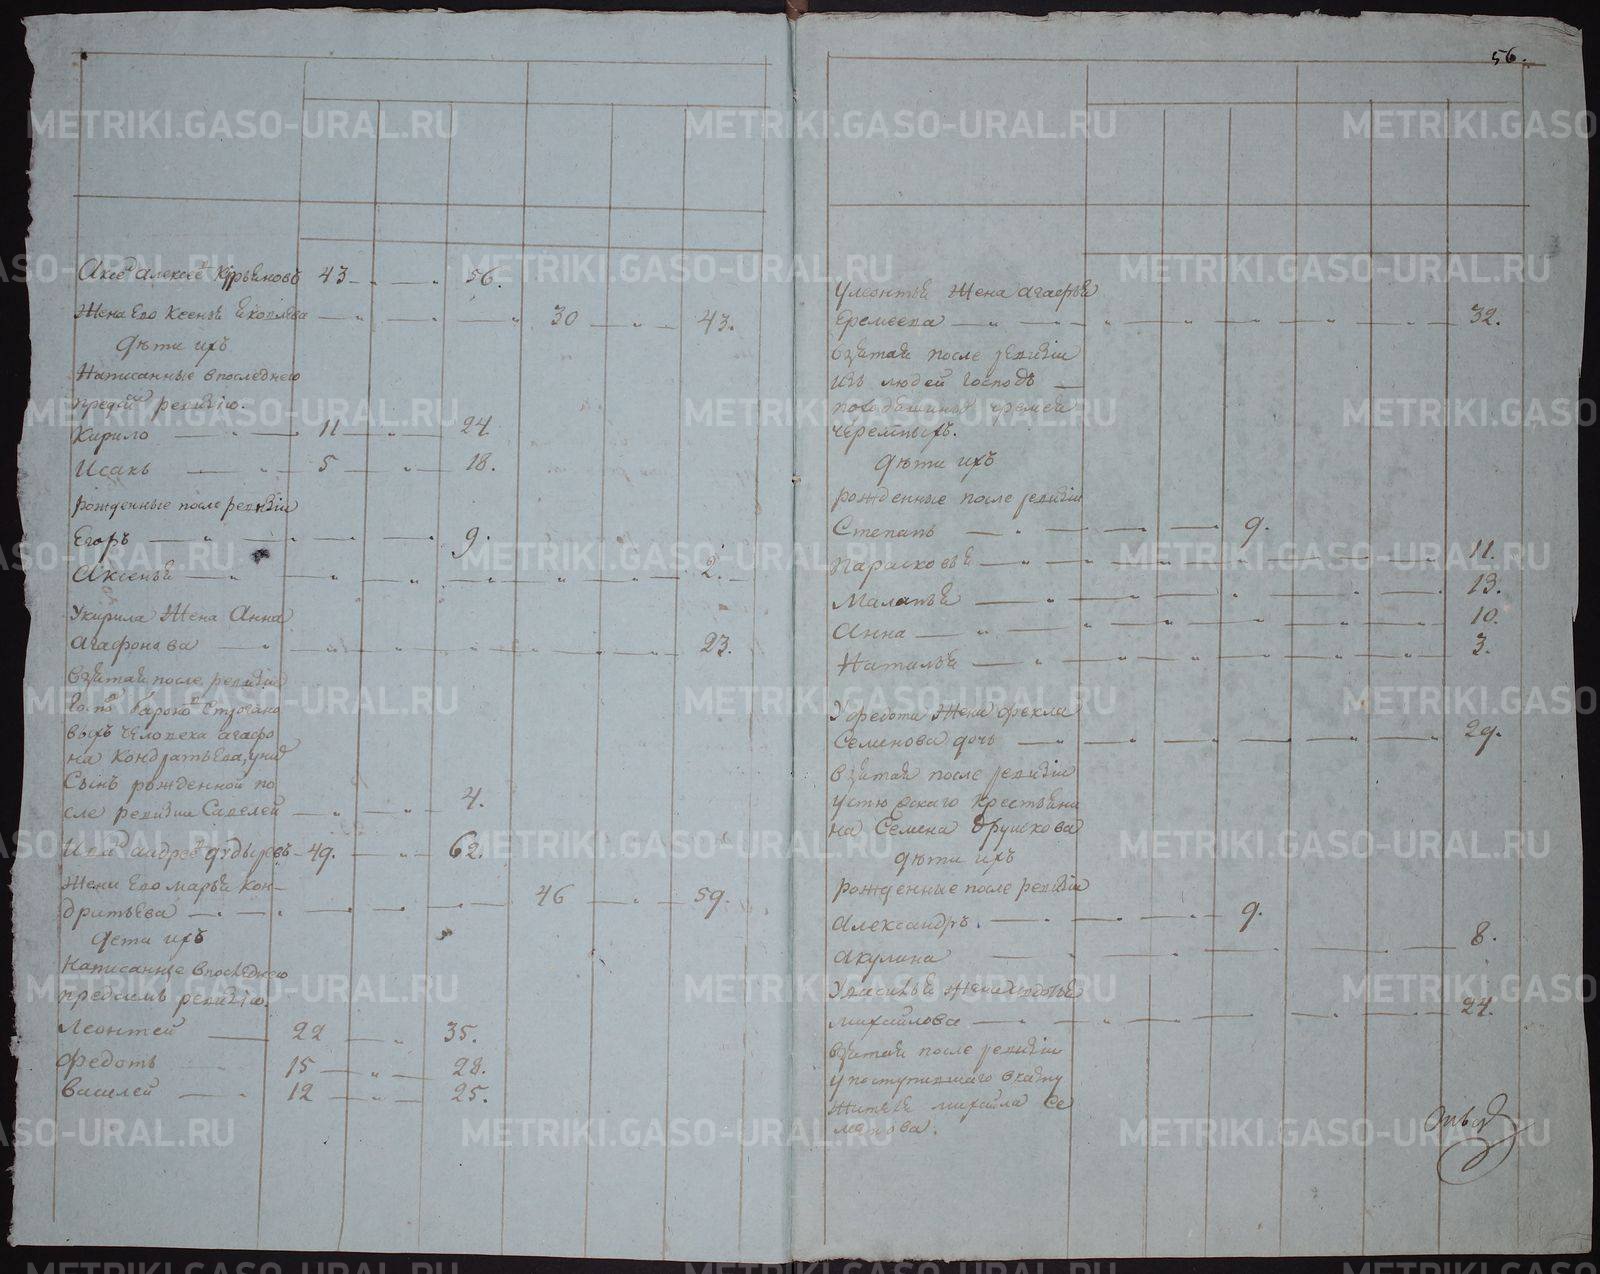 Аксеⷩ Алексееⷡ Курьяновъ 43 — „ — 56.
Жена Ево Ксенья Яковлева — „ — „ — „ 30 — „ — 43.
Дѣти ихъ
Написанные впоследнею
предъ сиⷨ ревизию.
Кирило — „ — 11 — „ — 24
Исакъ — „ — 5 — „ — 18.
рожденные после ревизии
Егоръ — „ — „ — 9.
Аксенья — „ — „ — „ — „ — „ — 2.
Укирила Жена Анна
Агафонова — „ — „ — „ — „ — 23.
взятая после ревизии
Госпоⷣ бароноⷡ Строгано
выхъ человека агафо
на Кондратьева, униⷯ
Сынъ рожденной по
сле ревизии Савелей — „ — 4.
Иваⷩ андрееⷡ дудыревъ — 49. — „ — 62.
Жена Ево марья Кон-
дратьева — „ — „ — 46 — „ — 59.
Дети ихъ
Написанные впоследнею
предсимъ ревизию
Леонтей — 22 — „ — 35.
Федотъ 15 — „ — 28.
Василей — „ 12 — „ — 25.
56.
Улеонтья Жена Агафья
Еремеева — „ — „ — „ — „ — 32.
взятая после ревизии
изъ людей Господъ —
походяшина еремея
черемныхъ.
Дѣти ихъ
рожденные после ревизии
Степанъ — „ — „ — 9.
Парасковья — „ — „ — „ — 11.
Маланья — „ — „ — „ — 13.
Анна — „ — „ — „ — 10.
Наталья — „ — „ — „ — 3.
Уфедота Жена фекла
Семенова дочь — „ — „ — „ — 29.
взятая после ревизии
крестьяни
на Семена Трушкова
дѣти ихъ
рожденные после ревизии
Александръ. — „ — „ — 9.
Акулина — 8.
Увасилья Жена
михайлова — „ — „ — „ — 24.
взятая после ревизии
упоступившаго вказну
Жителя михайла Се
менова.